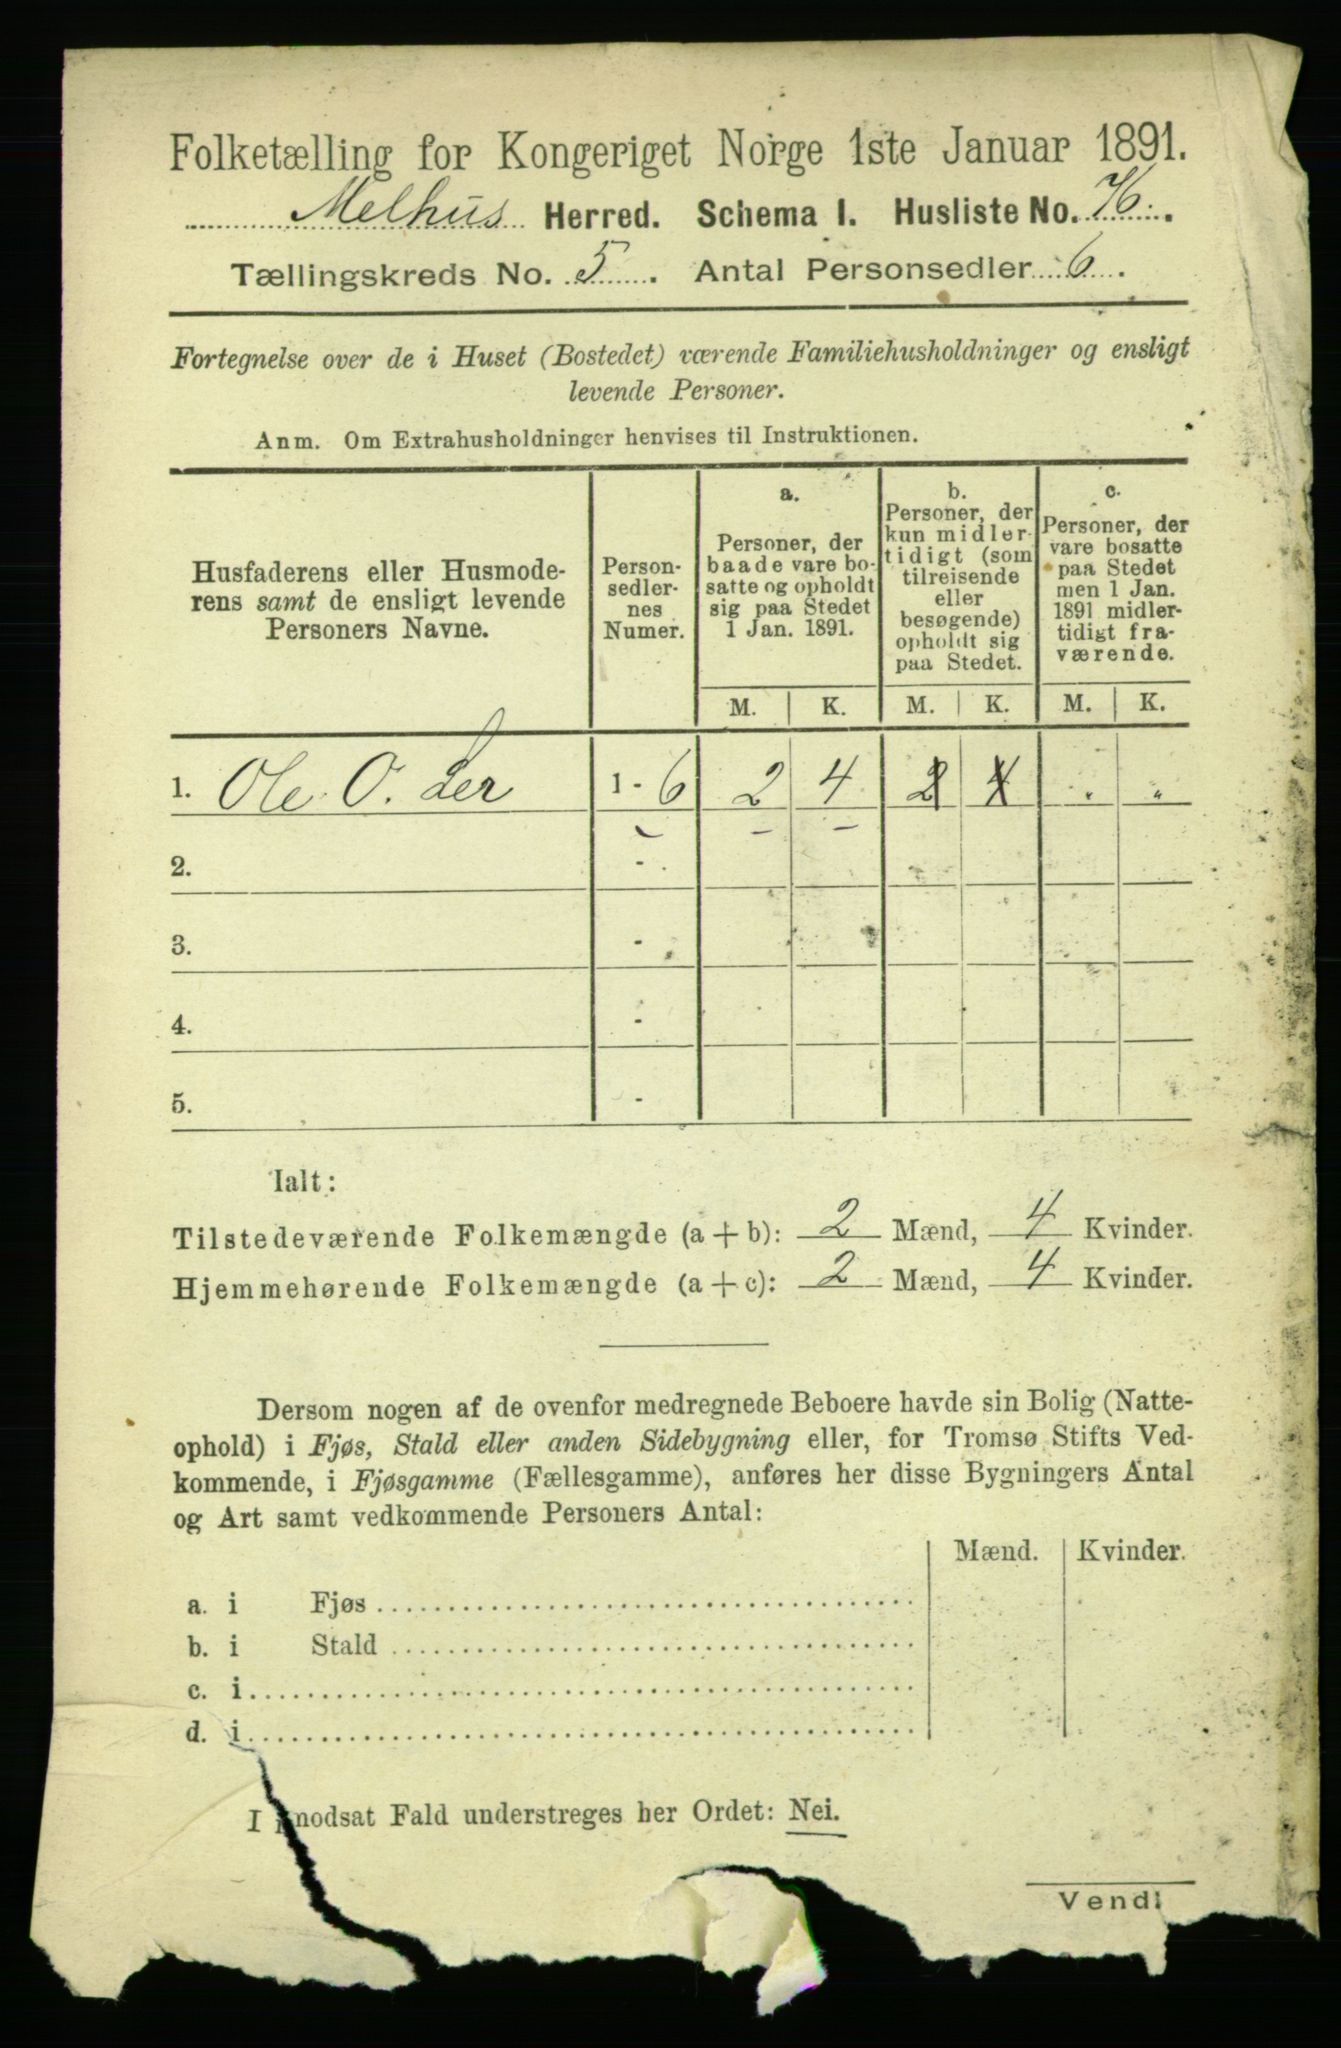 Folketælling for Kongeriget Norge 1ste Januar 1891.
Melhus Herred. Schema I. Husliste No. 76.
Tællingskreds No. 5. Antal Personsedler 6.
Fortegnelse over de i Huset (Bostedet) værende Familiehusholdninger og ensligt
levende Personer.
Anm. Om Extrahusholdninger henvises til Instruktionen.
Husfaderens eller Husmode-
rens samt de ensligt levende
Personers Navne.
Person-
sedler-
nes
Numer.
a.
Personer, der
baade vare bo-
satte og opholdt
sig paa Stedet
1 Jan. 1891.
b.
Personer, der
kun midler-
tidigt (som
tilreisende
eller
besøgende)
opholdt sig
paa Stedet.
c.
Personer, der
vare bosatte
paa Stedet
men 1 Jan.
1891 midler-
tidigt fra-
værende.
M. K. M. K. M. K.
1. Ole O. Ler 1 - 6 2 4 2 4 " "
2. -
3. -
4. -
5. -
Ialt:
Tilstedeværende Folkemængde (a + b): 2 Mænd, 4 Kvinder.
Hjemmehørende Folkemængde (a + c): 2 Mænd, 4 Kvinder.
Dersom nogen af de ovenfor medregnede Beboere havde sin Bolig (Natte-
ophold) i Fjøs, Stald eller anden Sidebygning eller, for Tromsø Stifts Ved-
kommende, i Fjøsgamme (Fællesgamme), anføres her disse Bygningers Antal
og Art samt vedkommende Personers Antal:
Mænd. Kvinder.
a. i Fjøs
b. i Stald
c. i
d. i
I modsat Fald understreges her Ordet: Nei.
Vend!